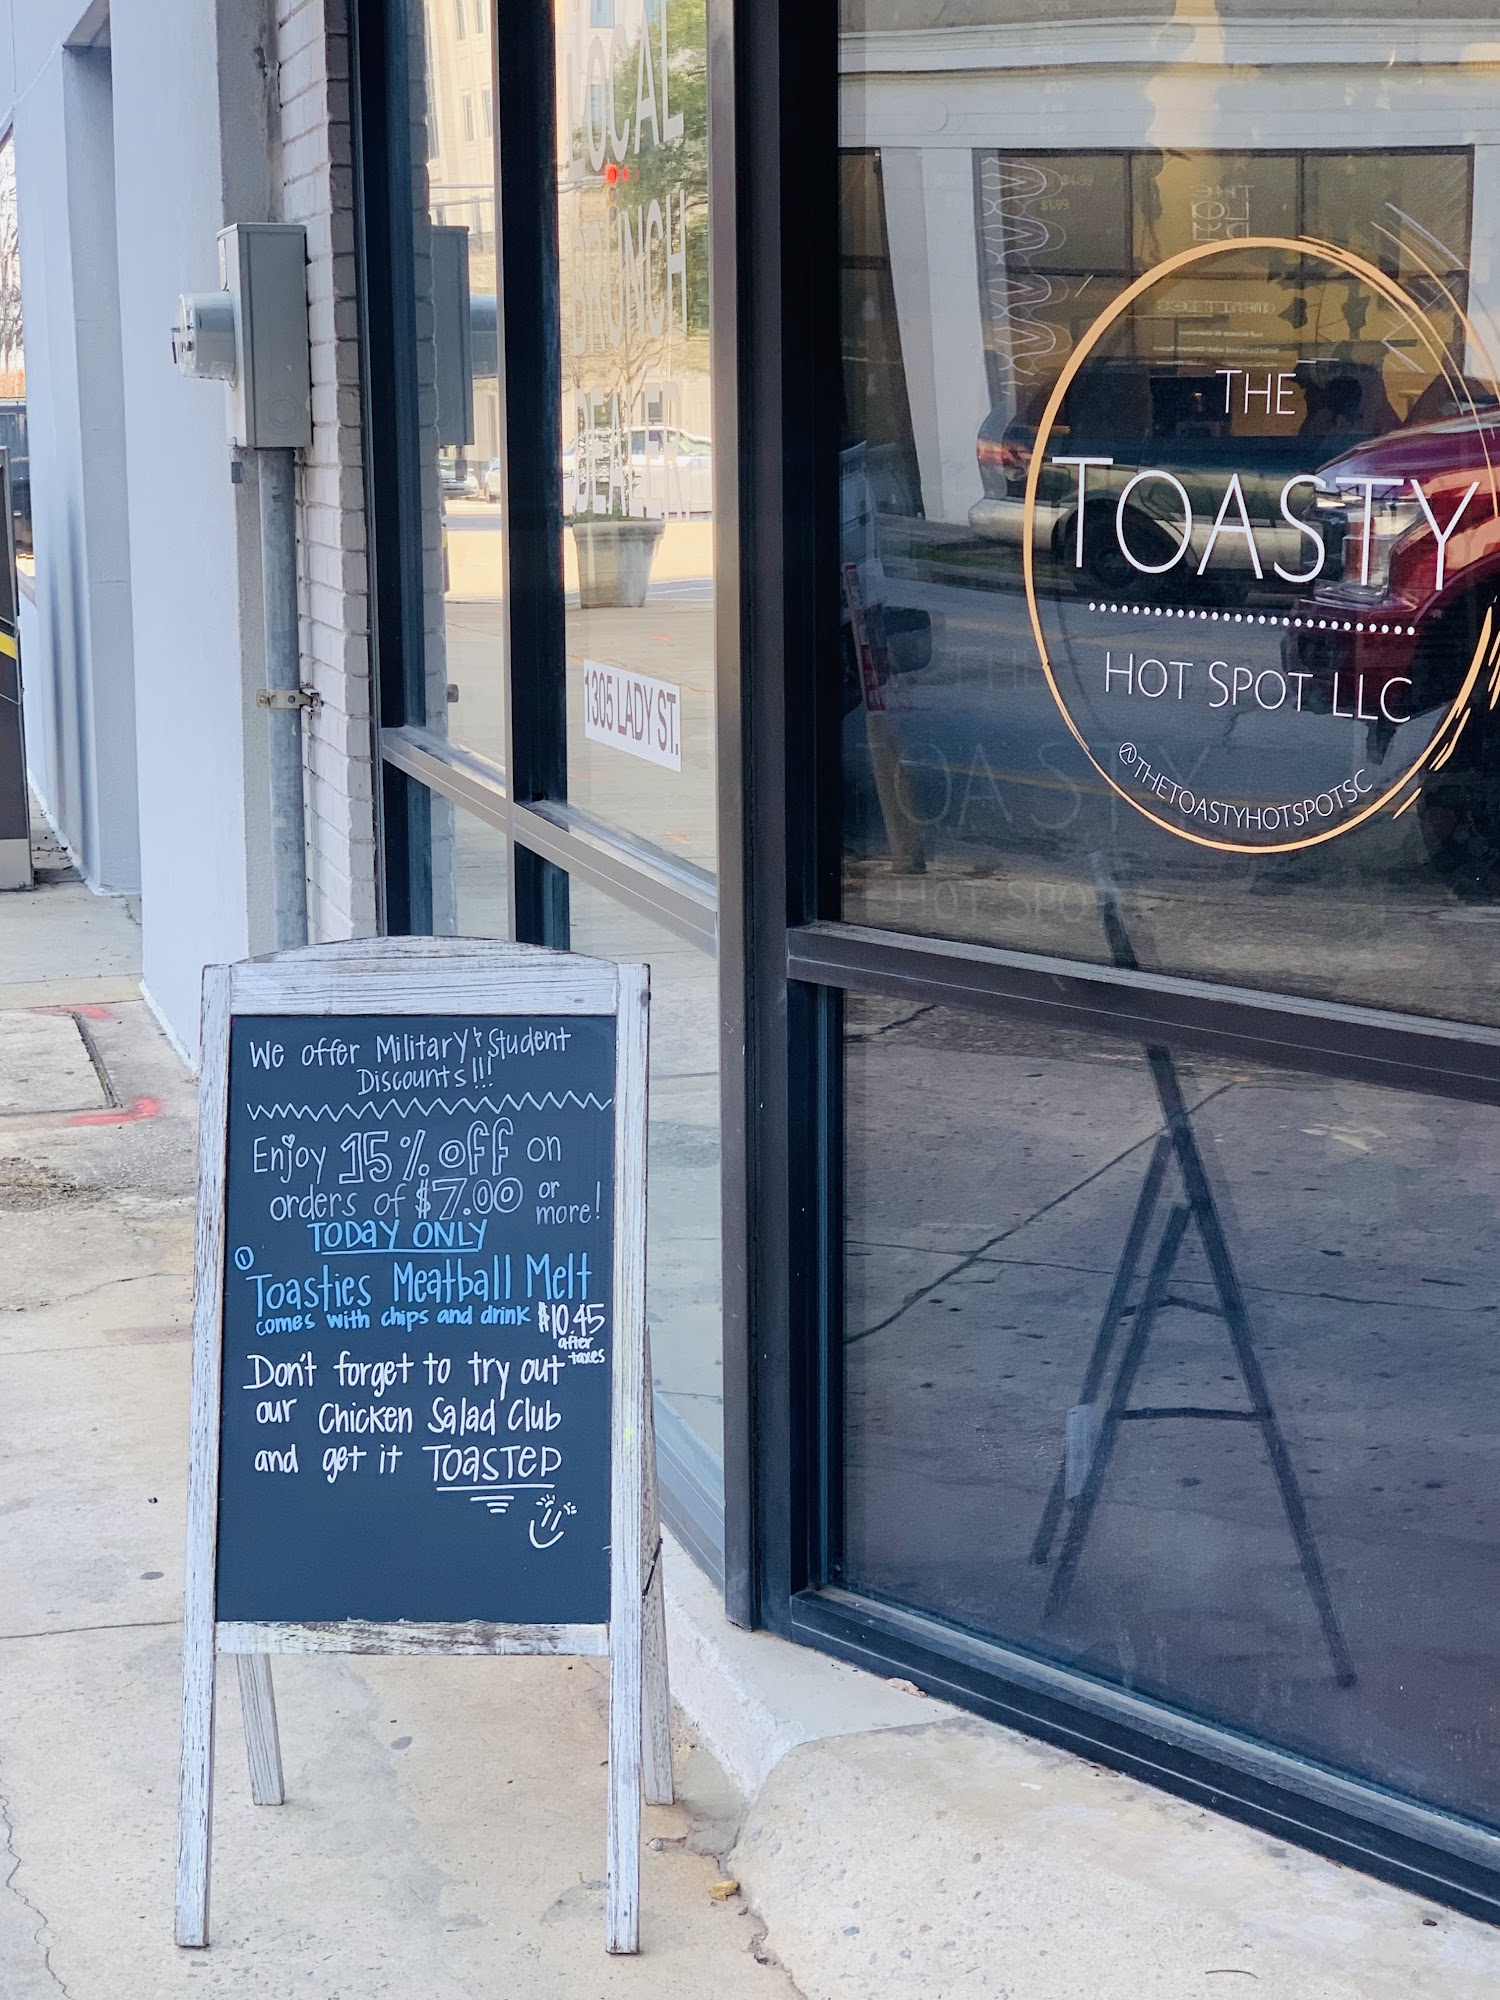 LOCAL
BRUNCH
DEALER
1305 LADY ST.
THE
TOASTY
HOT SPOT LLC
@THETOASTYHOTSPOTSC
We offer Military & Student
Discounts!!!
Enjoy 15% off on
orders of $7.00 or
more!
TODAY ONLY
① Toasties Meatball Melt
comes with chips and drink $10.45
after
taxes
Don't forget to try out
our Chicken Salad Club
and get it TOASTED